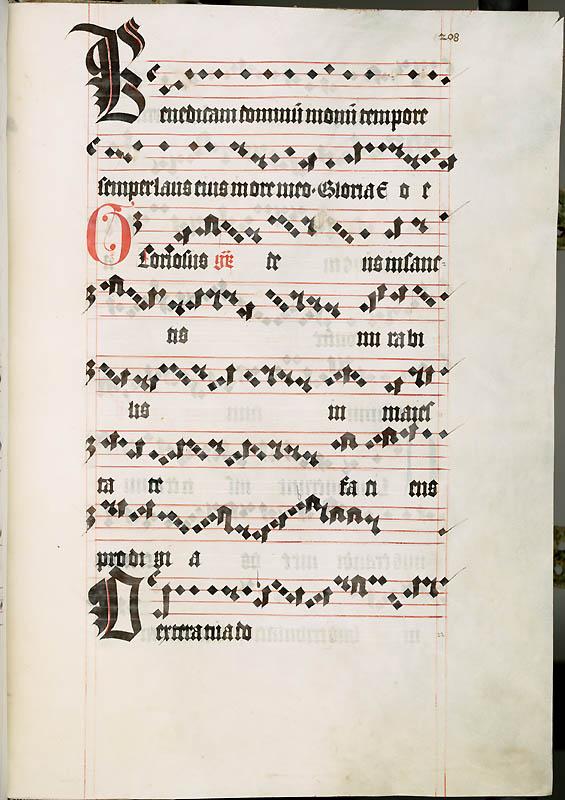 208
Benedicam dominū in om̄i tempore
semper laus eius in ore meo · Gloria E o e
Gloriosus gr̄ de us in sanc-
tis mi rabi
lis in maies
ta te fa ci ens
prodi gi a
Dextera tua do